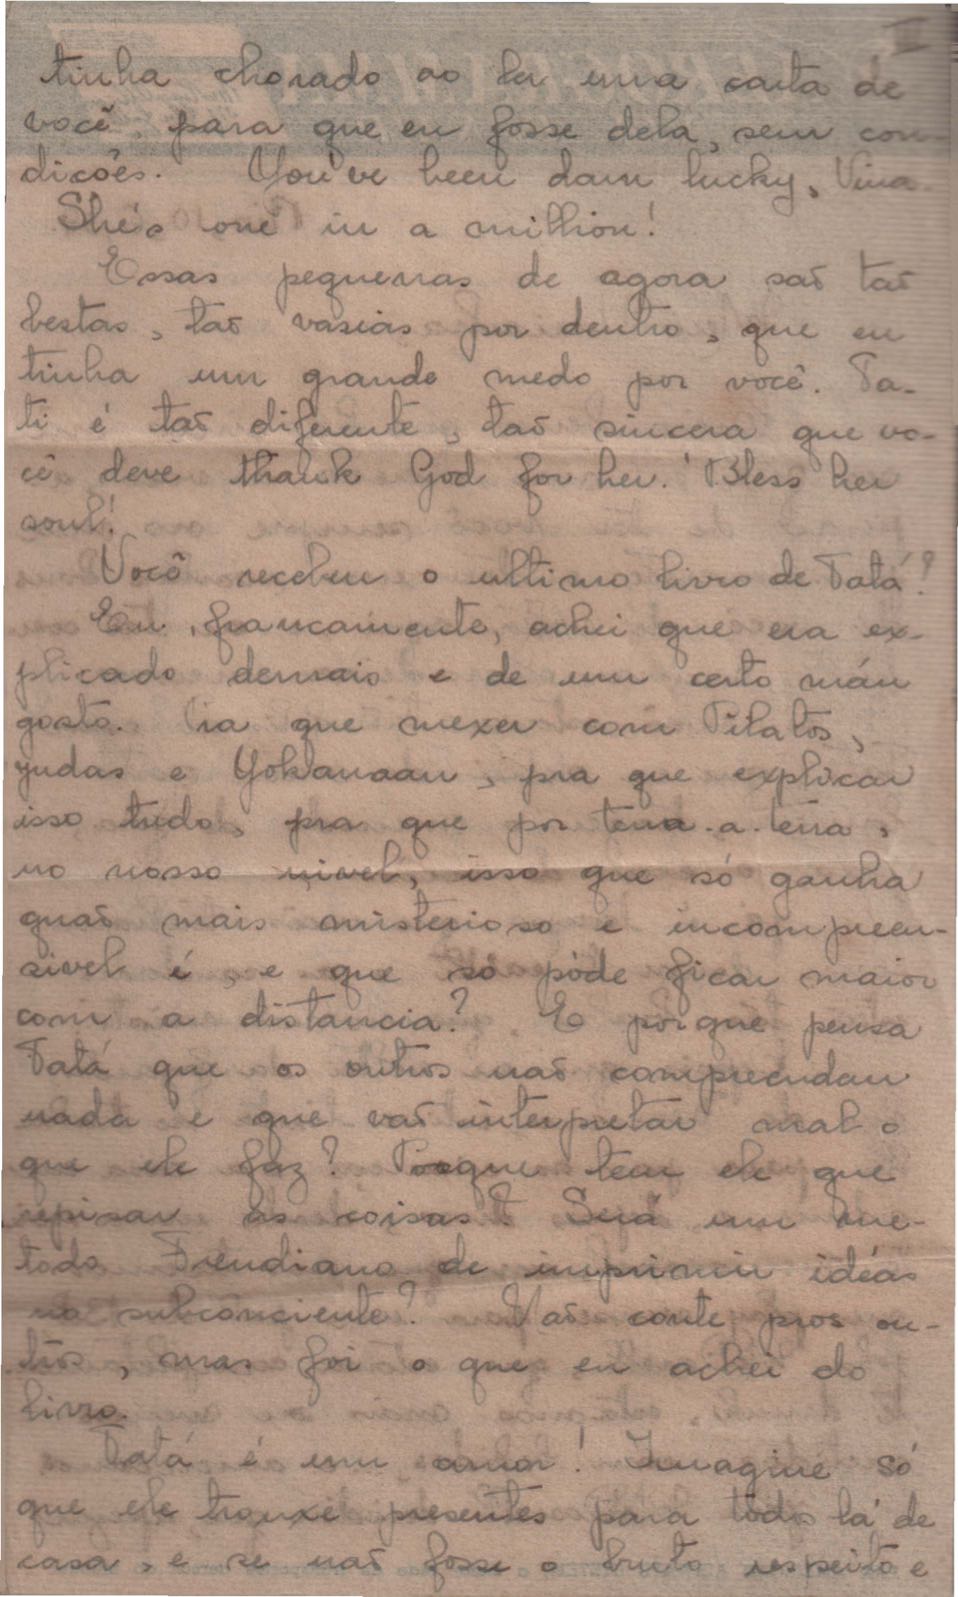 II
tinha chorado ao ler uma carta de
você, para que eu fosse dela, sem con-
dicões. You've been dam lucky, Vina.
She's one in a million!
Essas pequenas de agora são tão
bestas, tão vasias por dentro, que eu
tinha um grande medo por você. Ta-
ti é tão diferente, tão sincera que vo-
cê deve thank God for her. Bless her
soul!
Você recebeu o ultimo livro de Tatá?
Eu, francamente, achei que era ex-
plicado demais e de um certo máu
gosto. Pra que mexer com Pilatos,
Judas e Yokanaan, pra que explicar
isso tudo, pra que por terra-a-terra,
no nosso nivel, isso que só ganha
quão mais misterioso e incompreen-
sivel é, e que só póde ficar maior
com a distancia? E porque pensa
Tatá que os outros não compreendam
nada e que vão interpretar mal o
que ele faz? Porque tem ele que
repisar as coisas? Será um me-
todo Freudiano de imprimir idéas
no subconciente? Não conte pros ou-
tros, mas foi o que eu achei do
livro.
Tatá é um amor! Imagine só
que ele trouxe presentes para todos lá de
casa, e se não fosse o bruto respeito e